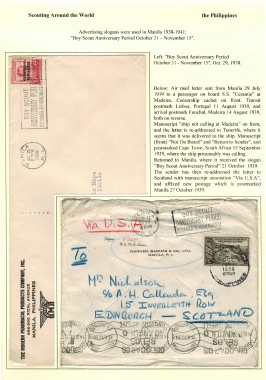 Scouting Around the World
the Philippines
Advertising slogans were used in Manila 1938-1941:
"Boy Scout Anniversary Period October 31 - November 15".
Left: "Boy Scout Anniversary Period
October 31 - November 15", Oct. 29, 1938.
Below: Air mail letter sent from Manila 29 July
1939 to a passenger on board S.S. "Ceramic" at
Madeira. Censorship cachet on front. Transit
postmark Lisboa, Portugal 11 August 1939, and
arrival postmark Funchal, Madeira 14 August 1939,
both on reverse.
Manuscript "ship not calling at Madeira" on front,
and the letter is re-addressed to Tenerife, where it
seems that it was delivered to the ship. Manuscript
(front) "Not On Board" and "Return to Sender", and
postmarked Cape Town, South Africa 15 September
1939, where the ship presumably was calling.
Returned to Manila, where it received the slogan
"Boy Scout Anniversary Period" 21 October 1939.
The sender has then re-addressed the letter to
Scotland with manuscript annotation "Via U.S.A",
and affixed new postage which is postmarked
Manila 27 October 1939.
THE MODERN PHARMACAL PRODUCTS COMPANY, INC.
MANILA, PHILIPPINES
Via U.S.A
WARNER, BARNES & CO., LTD.
MANILA, P. I.
To
Mr Nicholson
% A.H. Callender Esq
15 Inverleith Row
Edinburgh - Scotland